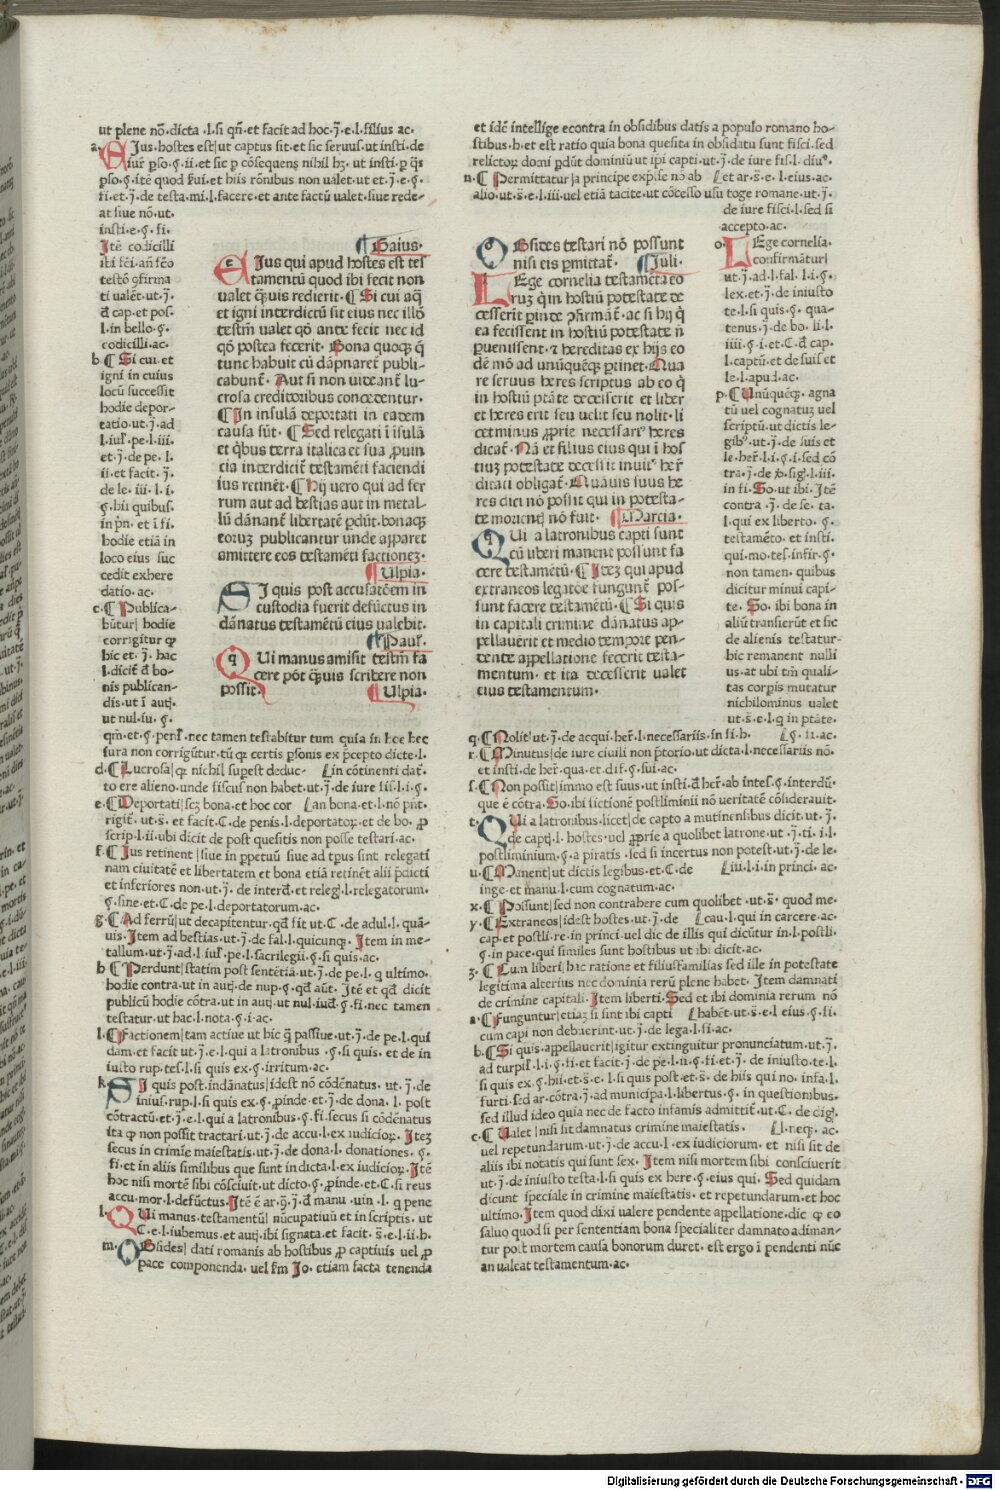 ut plene nō·dicta·l·si qn̄·et facit ad hoc·j̄·e·l·filius ac·
a· EJus·hostes est|ut captus sit·et sic seruus·ut insti·de
iur̄ ꝑso·ꝯ·ii·et sic ꝑ cōsequens nihil hꝫ·ut insti·ꝑ q̄s
ꝑso·ꝯ·itē quod
et j̄·de testa·mi·l·facere·et ante factū ualet·siue rede-
at siue nō·ut·
insti·e·ꝯ·fi·
Jtē codicilli
ualēt·ut·j̄·
đ cap·et pos·
l·in bello·ꝯ·
codicilli·ac·
b·¶ Si cui·et
igni in cuius
locū successit
hodie depor-
tatio·ut·j̄·ad
et·j̄·de pe·l·
ii·et facit·j̄·
de le·iii·l·i·
ꝯ·hii quibus·
in pn̄·et i fi·
hodie etiā in
loco eius suc
cedit exhere
datio·ac·
c·¶ Publica-
būtur| hodie
corrigitur ꝙ
hic et·j̄·hac
l·dicit đ bo-
nis publican-
dis·ut i autj·
ut nul·iu·ꝯ·
¶ Gaius·
EJus qui apud hostes est tes
tamentū quod ibi fecit non
ualet q̄uis redierit·¶ Si cui aq̄
et igni interdictū sit eius nec illō
testm̄ ualet qō ante fecit nec id
qō postea fecerit·Bona quoqꝫ q̄
tunc habuit cū dāpnaret̄ publi-
cabunt̄·Aut si non uideant̄ lu-
crosa creditoribus concedentur·
¶ In insulā deportati in eadem
causa sūt·¶ Sed relegati i īsulā
et q̄bus terra italica et sua ꝓuin
cia interdicit̄ testamēti faciendi
ius retinēt·¶ Hij uero qui ad fer
rum aut ad bestias aut in metal-
lū dānant̄ libertatē ꝑdūt·bonaqꝫ
eoruꝫ publicantur unde apparet
amittere eos testamēti factioneꝫ·
¶ Ulpia·
SJ quis post accusatōem in
custodia fuerit defūctus in
dānatus testamētū eius ualebit·
¶ Paul̄·
QUi manus amisit testm̄ fa
cere pōt q̄uis scribere non
possit·
¶ Ulpia·
qm̄·et·ꝯ·pen̄l·nec tamen testabitur tum quia in hoc hec
iura non corrigūtur·tū qꝫ certis ꝑsonis ex p̄cepto dicte·l·
d·¶ Lucrosa| qꝫ nichil supest deduc- [in cōtinenti dat̄·
to ere alieno·unde fiscus non habet·ut·j̄·de iure fis·l·i·ꝯ·
e·¶ Deportati| scꝫ bona·et hoc cor [an bona·et·l·nō pn̄t·
rigit̄·ut·s̄·et facit·C·de penis·l·deportatoꝝ·et de bo·ꝓ
scrip·l·ii·ubi dicit de post quesitis non posse testari·ac·
f·¶ Jus retinent| siue in ꝑpetuū siue ad tꝑus sint relegati
nam ciuitatē et libertatem et bona etiā retinēt alii p̄dicti
et inferiores non·ut·j̄·de interd̄·et releḡ·l·relegatorum·
ꝯ·fine·et·C·de pe·l·deportatorum·ac·
g·¶ Ad ferrū|ut decapitentur·qđ sit ut·C·de adul·l·quā-
uis·Jtem ad bestias·ut·j̄·de fal·l·quicunqꝫ·Jtem in me-
tallum·ut·j̄·ad·l·iul̄·pe·l·sacrilegii·ꝯ·si quis·ac·
h ¶ Perdunt| statim post sentētiā·ut·j̄·de pe·l·q ultimo·
hodie contra·ut in autj·de nup·ꝯ·qđ aūt·Jtē et qđ dicit
publicū hodie cōtra·ut in autj·ut nul·iud̄·ꝯ·fi·nec tamen
testatur·ut hac·l·nota·ꝯ·i·ac·
i·¶ Factionem| tam actiue ut hic q̄ passiue·ut·j̄·de pe·l·qui
dam·et facit ut·j̄·e·l·qui a latronibus·ꝯ·si quis·et de in
iusto rup·tes·l·si quis ex·ꝯ·irritum·ac·
k· SJ quis post·indānatus| idest nō cōdēnatus·ut·j̄·de
inius·rup·l·si quis ex·ꝯ·ꝓinde·et·j̄·de dona·l·post
cōtractū·et·j̄·e·l·qui a latronibus·ꝯ·fi·secus si cōdēnatus
ita ꝙ non possit tractari·ut·j̄·de accu·l·ex iudicioꝝ·Jteꝫ
secus in crimīe maiestatis·ut·j̄·de dona·l·donationes·ꝯ·
fi·et in aliis similibus que sunt in dicta·l·ex iudicioꝝ·Jtē
hoc nisi mortē sibi cōsciuit·ut dicto·ꝯ·ꝓinde·et·C·si reus
accu·mor·l·defūctus·Jtē ē ar·ꝯ·j̄·đ manu·uin·l·q pene
l· QUi manus·testamentū| nūcupatiuū et in scriptis·ut
C·e·l·iubemus·et autj·ibi signata·et facit·s̄·e·l·ii·h·
m· OBsides| dati romanis ab hostibus ꝓ captiuis uel ꝓ
pace componenda·uel fm̄ Jo·etiam facta tenenda
et idē intellige econtra in obsidibus datis a populo romano ho-
stibus·h·et est ratio quia bona quesita in obsidatu sunt fisci·sed
relictoꝝ domi ꝑdūt dominiū ut ipi capti·ut·j̄·de iure fis·l·diuꝰ·
n·¶ Permittatur| a principe exp̄se nō ab [et ar·s̄·e·l·eius·ac·
alio·ut·s̄·e·l·iii·uel etiā tacite·ut cōcesso usu toge romane·ut·j̄·
de iure fisci·l·sed si
accepto·ac·
OBsides testari nō possunt
nisi eis ꝑmittat̄·¶ Juli·
LEge cornelia testamēta eo
ruꝫ q̄ in hostiū potestate de
cesserit ꝑinde ꝯfirmāt̄·ac si hij q̄
ea fecissent in hostiū potestate n̄
ꝑuenissent·⁊ hereditas ex hijs eo
dē mō ad unūquēqꝫ ꝑtinet·Qua
re seruus heres scriptus ab eo q̄
in hostiū ptāte decesserit et liber
et heres erit seu uelit seu nolit·li
cet minus ꝓprie necessariꝰ heres
dicat̄·Nā et filius eius qui i hos
tiuꝫ potestate decessit inuitꝰ her̄
ditati obligat̄·Quāuis suus he
res dici nō possit qui in potesta-
te morientꝭ nō fuit·¶ Marcia·
QUi a latronibus capti sunt
cū liberi manent possunt fa
cere testamētū·¶ Jteꝫ qui apud
extraneos legatōe fungunt̄ pos-
sunt facere testamētū·¶ Si quis
in capitali crimine dānatus ap-
pellauerit et medio tempore pen-
dente appellatione fecerit testa-
mentum·et ita decesserit ualet
eius testamentum·
o· LEge cornelia·
confirmātur|
ut·j̄·ad·l·fal·l·i·ꝯ·
lex·et·j̄·de iniusto
te·l·si quis·ꝯ·qua-
tenus·j̄·de bo·li·l·
iiii·ꝯ·i·et·C·đ cap·
l·captū·et de suis et
le·l·apud·ac·
p·¶ Unūquēqꝫ·agna
tū uel cognatuꝫ uel
scriptū·ut dictis le-
gibꝰ·ut·j̄·de suis et
le·her̄·l·i·ꝯ·i·sed cō
in fi·So·ut ibi·Jtē
contra·j̄·de se·ta·
l·qui ex liberto·ꝯ·
testamēto·et insti·
qui·mo·tes·infir·ꝯ·
non tamen·quibus
dicitur minui capi-
te·So·ibi bona in
aliū transierūt et sic
de alienis testatur-
hic remanent nulli
us·at ubi tm̄ quali-
tas corpis mutatur
nichilominus ualet
ut·s̄·e·l·q in ptāte·
q·¶ Nolit| ut·j̄·de acqui·her̄·l·necessariis·in fi·h· [ꝯ·ii·ac·
r·¶ Minutus| de iure ciuili non p̄torio·ut dicta·l·necessariis nō·
et insti·de her̄·qua·et dif·ꝯ·sui·ac·
s·¶ Non possit| immo est suus·ut insti·đ her̄·ab intes·ꝯ·interdū·
que ē cōtra·So·ibi fictionē postliminii nō ueritatē cōsiderauit·
t· QUi a latronibus·licet| de capto a mutinensibus dicit ut·j̄·
de capt̄·l·hostes·uel ꝓprie a quolibet latrone·ut·j̄·ti·i·l·
postliminium·ꝯ·a piratis·sed si incertus non potest·ut·j̄·de le·
u·¶ Manent| ut dictis legibus·et·C·de [iu·l·i·in princi·ac·
inge·et manu·l·cum cognatum·ac·
x·¶ Possunt| sed non contrahere cum quolibet·ut·s̄·quod me·
y·¶ Extraneos| idest hostes·ut·j̄·de [cau·l·qui in carcere·ac·
cap·et postli·re·in princi·uel dic de illis qui dicūtur in·l·postli·
ꝯ·in pace·qui similes sunt hostibus ut ibi dicit·ac·
z·¶ Cum liberi| hac ratione et filiusfamilias sed ille in potestate
legitima alterius nec dominia rerū plene habet·Jtem damnati
de crimine capitali·Jtem liberti·Sed et ibi dominia rerum nō
a·¶ Funguntur| etiaꝫ si sint ibi capti [habēt·ut·s̄·e·l eius·ꝯ·fi·
cum capi non debuerint·ut·j̄·de lega·l·fi·ac·
b·¶ Si quis·appellauerit| igitur extinguitur pronunciatum·ut·j̄·
ad turpil̄·l·i·ꝯ·fi·et facit·j̄·de pe·l·ii·ꝯ·fi·et·j̄·de iniusto·te·l·
si quis ex·ꝯ·hii·et·s̄·e·l·si quis post·et·s̄·de hiis qui no·infa·l·
furti·sed ar·cōtra·j̄·ad municipa·l·libertus·ꝯ·in questionibus·
sed illud ideo quia nec de facto infamis admittit̄·ut·C·de dig·
c·¶ Ualet| nisi sit damnatus crimine maiestatis· [l·neqꝫ·ac·
uel repetundarum·ut·j̄·de accu·l·ex iudiciorum·et nisi sit de
aliis ibi notatis qui sunt sex·Jtem nisi mortem sibi consciuerit
ut·j̄·de iniusto testa·l·si quis ex here·ꝯ·eius qui·Sed quidam
dicunt speciale in crimine maiestatis·et repetundarum·et hoc
ultimo·Jtem quod dixi ualere pendente appellatione·dic ꝙ eo
saluo quod si per sententiam bona specialiter damnato adiman-
tur post mortem causa bonorum duret·est ergo i pendenti nūc
an ualeat testamentum·ac·
Digitalisierung gefördert durch die Deutsche Forschungsgemeinschaft - DFG